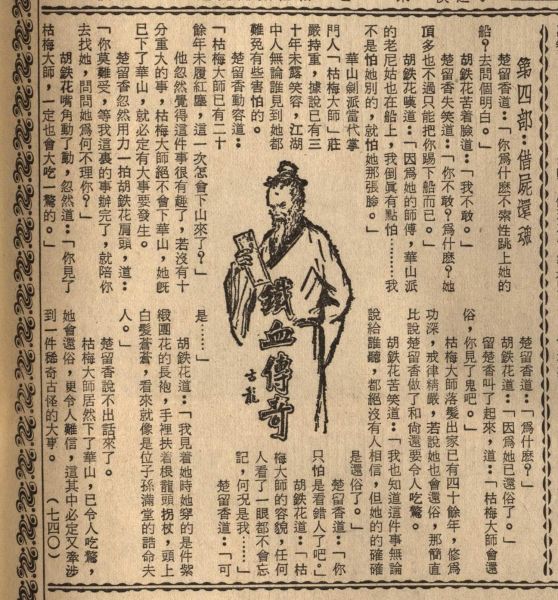 第四部：借屍還魂
楚留香道：「你爲什麽不索性跳上她的
船？去問個明白。」
胡鉄花苦着臉道：「我不敢。」
楚留香失笑道：「你不敢？爲什麽？她
頂多也不過只能把你踢下船而已。」
胡鉄花嘆道：「因爲她的師傅，華山派
的老尼姑也在船上，我倒眞有點怕……我
不是怕她別的，就怕她那張臉。」
華山劍派當代掌
門人「枯梅大師」莊
嚴持重，據說已有三
十年未露笑容，江湖
中人無論誰見到她都
難免有些害怕的。
楚留香動容道：
「枯梅大師已有二十
餘年未履紅塵，這一次怎會下山來了？」
他忽然覺得這件事很有趣了，若沒有十
分重大的事，枯梅大師絕不會下華山，她旣
已下了華山，就必定有大事要發生。
楚留香忽然用力一拍胡鉄花肩頭，道：
「你莫難受，等我這裏的事辦完了，就陪你
去找她，問問她爲何不理你？」
胡鉄花嘴角動了動，忽然道：「你見了
枯梅大師，一定也會大吃一驚的。」
鐵血傳奇
古龍
楚留香道：「爲什麽？」
胡鉄花道：「因爲她已還俗了。」
留楚香叫了起來，道：「枯梅大師會還
俗，你見了鬼吧。」
枯梅大師落髮出家已有四十餘年，修爲
功深，戒律精嚴，若說她也會還俗，那簡直
比說楚留香做了和尙還要令人吃驚。
胡鉄花苦笑道：「我也知道這件事無論
說給誰聽，都絕沒有人相信，但她的的確確
是還俗了。」
楚留香道：「你
只怕是看錯人了吧。」
胡鉄花道：「枯
梅大師的容貌，任何
人看了一眼都不會忘
記，何況是我……」
楚留香道：「可
是……」
胡鉄花道：「我見着她時她穿的是件紫
緞團花的長袍，手裡扶着根龍頭拐杖，頭上
白髮蒼蒼，看來就像是位子孫滿堂的誥命夫
人。」
楚留香說不出話來了。
枯梅大師居然下了華山，已令人吃驚，
她會還俗，更令人難信，這其中必定又牽涉
到一件稀奇古怪的大事。
（七四〇）